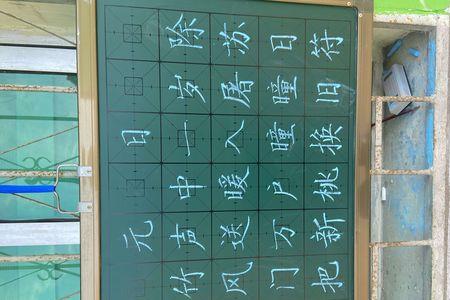 元日
竹声中一岁除
风送暖入屠苏
门万户曈曈日
把新桃换旧符